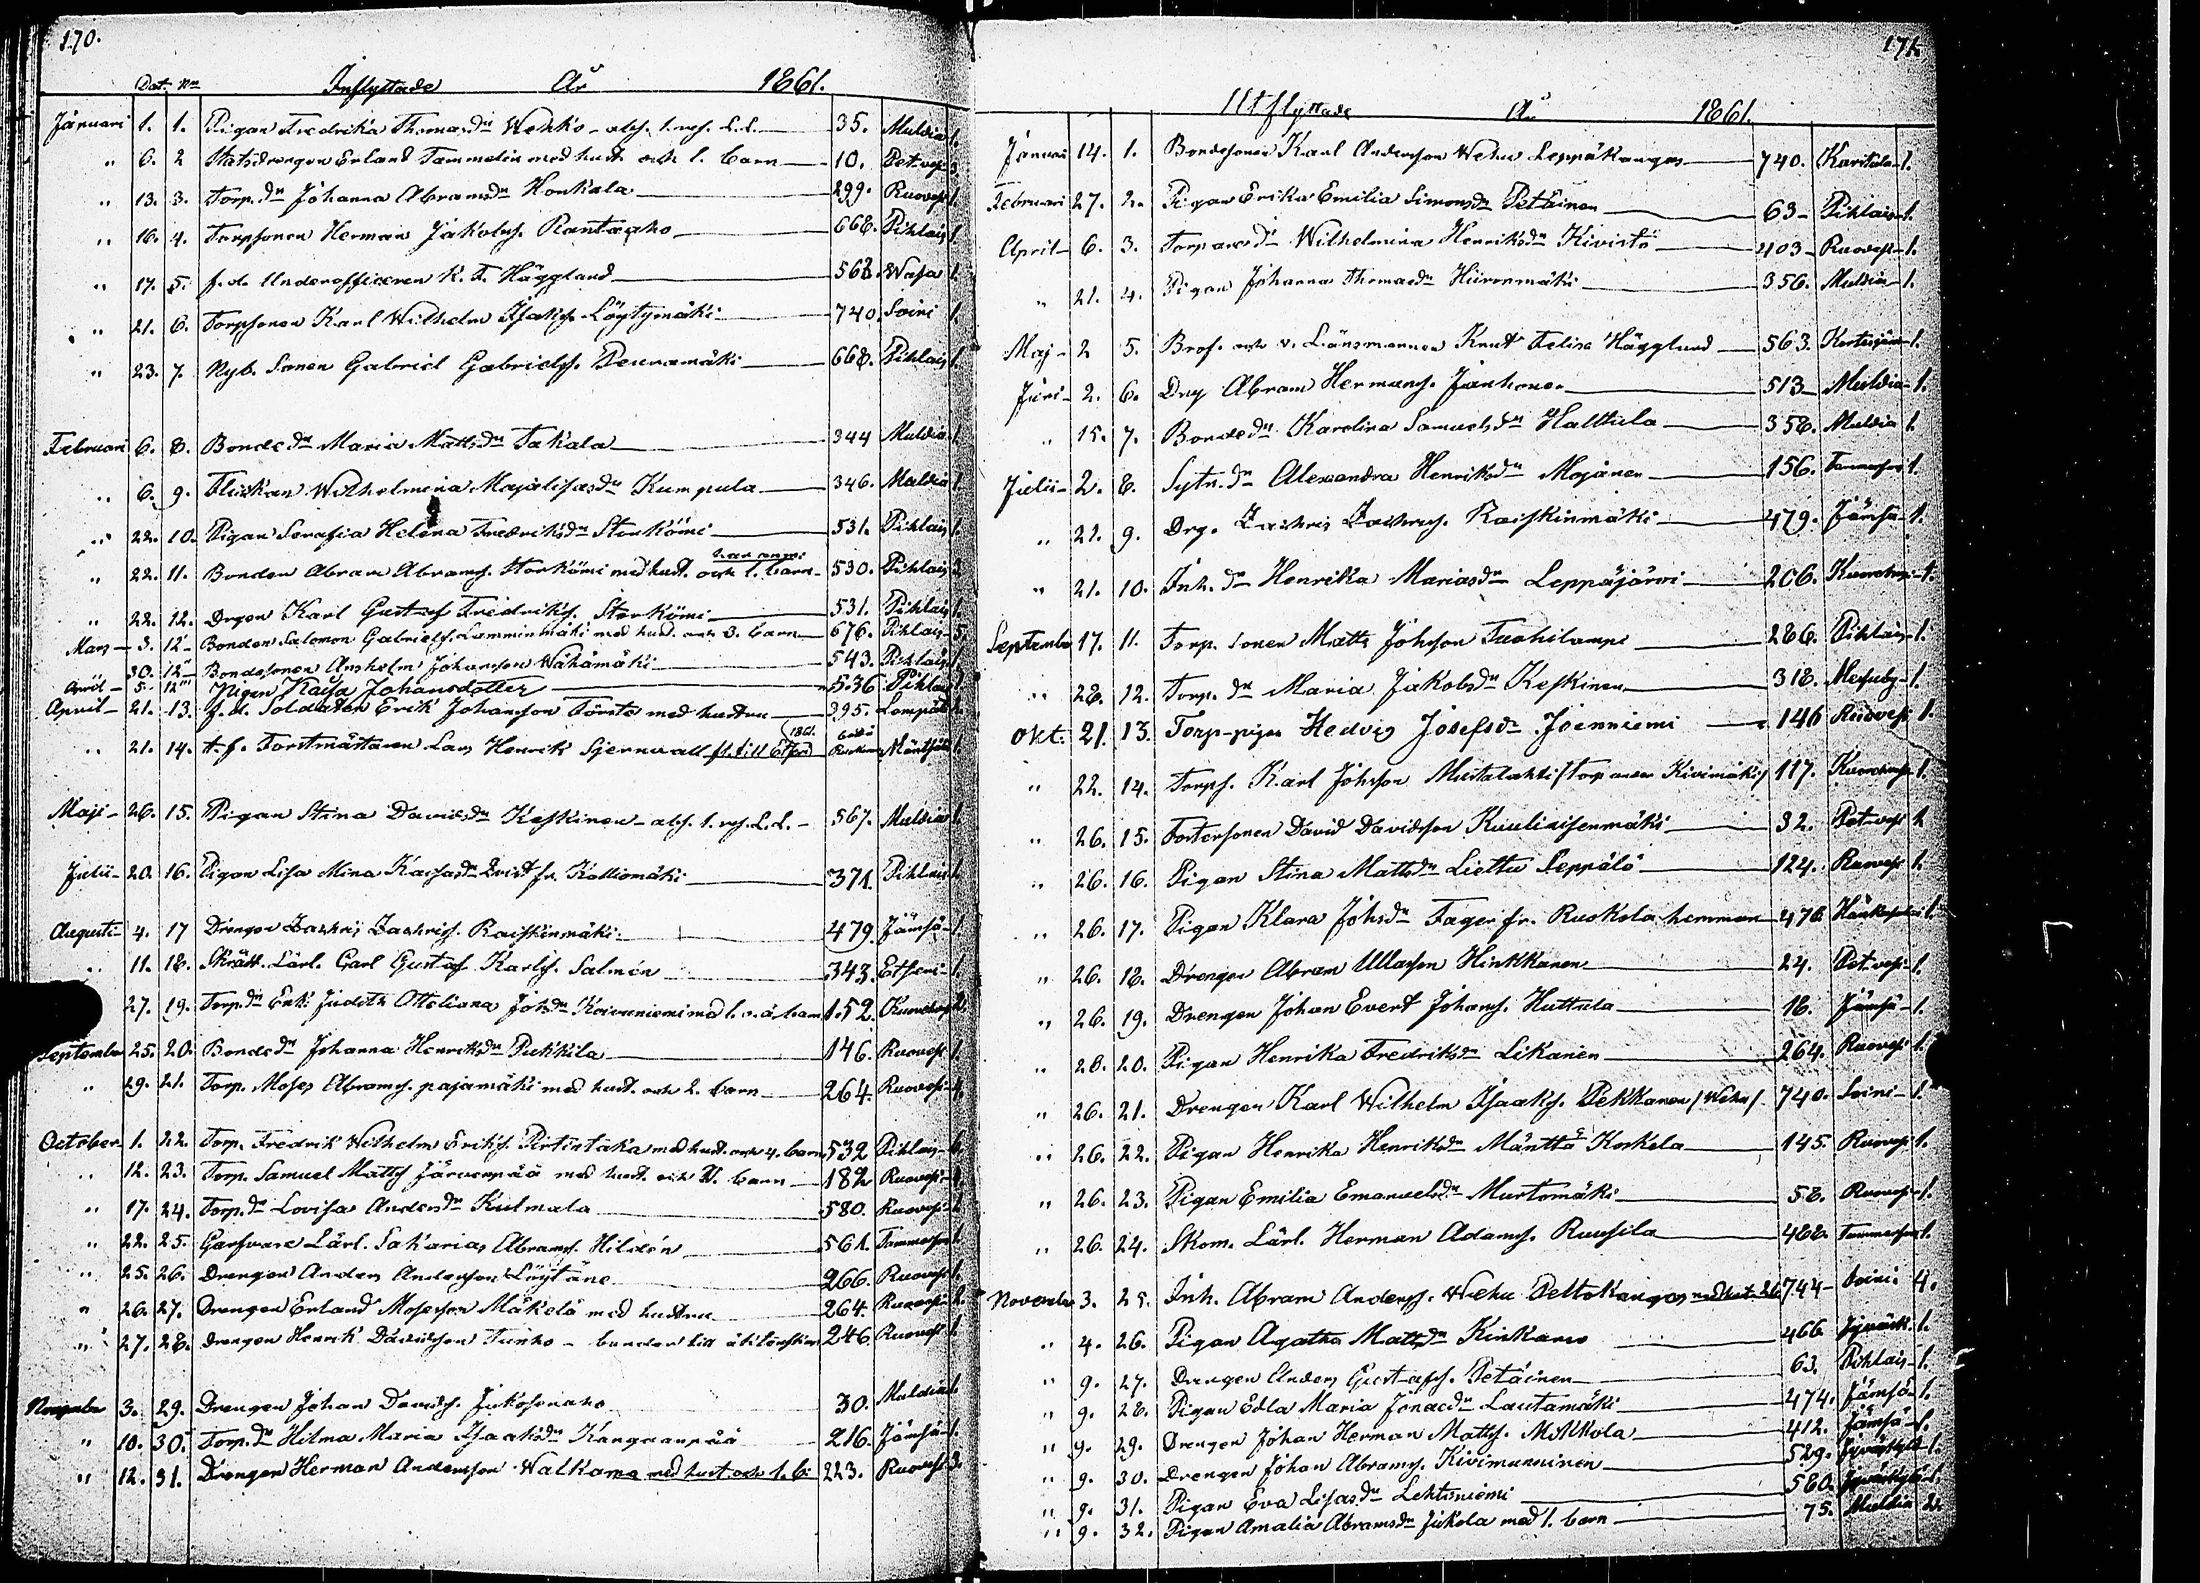 170.
Dat. No Inflyttade År 1861.
Januari 1. 1. Pigan Fredrika Thomasdr Wehko - abs. 1. ngs. L.L. 35. Muldia 1.
" 6. 2 Statsdrengen Erland Tammelin med hust. och 1. barn 10. Pet.vesi 3.
" 13. 3. Torp.dr Johanna Abramsdr Honkala 299. Ruovesi 1.
" 16. 4. Torpsonen Herman Jakobss. Rantaaho 668. Pihlais 1.
" 17. 5. f.d. Underofficeren K. F. Hägglund 568. Wasa 1.
" 21. 6. Torpsonen Karl Wilhelm Isakss. Löytymäki 740. Soini 1.
" 23. 7. Nyb. Sonen Gabriel Gabrielss. Peuramäki 668. Pihlais 1.
Februari 6. 8. Bondedr Maria Mattsdr Takala 344 Muldia 1.
" 6. 9. Flickan Wilhelmina Majalisasdr Kumpula 346. Muldia 1.
" 22. 10. Pigan Serafia Helena Fredriksdr Storkömi 531. Pihlais 1.
" 22. 11. Bonden Abram Abramss. Storkömi med hust. och 1. barn 530. Pihlais
" 22. 12. Drgen Karl Gustaf Fredrikss. Storkömi 531. Pihlais 1.
Mars 3. 12' Bonden Salomon Gabrielss. Lamminmäki med hust. och 3. barn 676. Pihlais 5.
30. 12" Bondesonen Anshelm Johansson Wähämäki 543. Pihlais 1.
April 5. 12''' Pigan Kaisa Johansdotter 536 Pihlais 1
April 21. 13. f.d. Soldaten Erik Johansson Törsto med hustru 295. Lampis 2.
" 21. 14. t.f. Forstmästaren Lars Henrik Sjernvall fl. till 1861. Mäntsälä 1.
Maji 26. 15. Pigan Stina Davidsdr Keskinen - abs. 1. ngs. L.L. 567. Muldia 1.
Julii 20. 16. Pigan Lisa Mina Kaisasdr Qvist fr. Kalliomäki 371. Pihlais 1.
Augusti 4. 17 Drengen Zachris Zachriss. Raiskinmäki 479. Jämsä 1.
" 11. 18. Skrädd. Lärl. Carl Gustaf Karlss. Salmén 343. Etseri 1.
27. 19. Torp.dr Enk. Judith Otteliana Johsdr Koivuniemi med 1. o.ä. barn 152. Kuorehvesi 2.
September 25. 20. Bondedr Johanna Henriksdr Pukkila 146. Ruovesi 1.
" 29. 21. Torp. Moses Abramss. pajamäki med hust. och 2. barn 264. Ruovesi 4.
October 1. 22. Torp. Fredrik Wilhelm Erikss. Pirtintaka med hust. och 4. barn 532 Pihlais 6.
" 12. 23. Torp. Samuel Matts Järvenpää med hust. och barn 182 Ruovesi
" 17. 24. Torp.dr Lovisa Andersdr Kulmala 580. Ruovesi 1.
" 22. 25. Garfvare Lärl. Sakarias Abramss. Hildén 561. Tammerfors 1.
" 25. 26. Drengen Anders Andersson Löytäne 266. Ruovesi 1.
" 26. 27. Drengen Erland Mosesson Mäkelä med hustru 264. Ruovesi 2.
" 27. 28. Drengen Henrik Davidsson Tunho - bunden till äktenskap 246. Ruovesi 1.
November 3. 29. Drengen Johan Davidss. Jukosenaho 30. Muldia 1.
" 10. 30. Torp.dr Hilma Maria Isaaksdr Kangaanpää 216. Jämsä 1.
" 12. 31. Drengen Herman Andersson Walkama med hust. och 1. b. 223. Ruovesi 3.
171.
Utflyttade År 1861.
Januari 14. 1. Bondesonen Karl Andersson Wehu Leppäkangas 740. Karstula 1.
Februari 27. 2. Pigan Erika Emilia Simonsdr Petäinen 63 Pihlais 1.
April 6. 3. Torparedr Wilhelmina Henriksdr Kivistö 403 Ruovesi 1.
" 21. 4. Pigan Johanna Thomasdr Hiironmäki 356. Muldia 1.
Maj 2 5. Brof. och v. Länsmannen Knut Felix Hägglund 563. Kortesjärvi 1.
Juni 2. 6. Drg Abram Hermanss. Janhonen 513 Muldia 1.
" 15. 7. Bondedr Karolina Samuelsdr Halttula 358. Muldia 1.
Julii 2. 8. Sytn.dr Alexandra Henriksdr Mojanen 156. Tammerfors 1.
" 21. 9. Drg. Zachris Zachriss. Raiskinmäki 479. Jämsä 1.
" 21. 10. Inh.dr Henrika Mariasdr Leppäjärvi 206. Kuorehvesi 1.
September 17. 11. Torp. sonen Matts Johsson Tuohilampi 286. Pihlais 1.
" 28. 12. Torp.dr Maria Jakobsdr Keskinen 318. Messuby 1.
Okt. 21. 13. Torp-pigan Hedvig Josefsdr Joenniemi 146 Ruovesi 1.
" 22. 14. Torps. Karl Johsson Mustalahti / Torparen Kivimäki / 117. Kuorehvesi 1.
" 26. 15. Fostersonen David Davidsson Kuulinisenmäki 32. Pet.vesi 1.
" 26. 16. Pigan Stina Mattsdr Liettu Seppälö 124. Ruovesi 1.
" 26. 17. Pigan Klara Johsdr Fager fr. Ruokola hemman 476 Hankasalmi 1.
" 26. 18. Drengen Abram Ullasson Hinkkanen 24. Pet.vesi 1.
" 26. 19. Drengen Johan Evert Johanss. Huttula 18. Jämsä 1.
" 26. 20. Pigan Henrika Fredriksdr Likanen 264. Ruovesi 1.
" 26. 21. Drengen Karl Wilhelm Isaakss. Pekkanen / Wehu / 740. Soini 1.
" 26. 22. Pigan Henrika Henriksdr Mänttä Koskela 145. Ruovesi 1.
" 26. 23. Pigan Emilia Emanuelsdr Murtomäki 58. Ruovesi 1.
" 26. 24. Skom. Lärl. Herman Adamss. Ruusila 468. Tammerfors 1.
November 3. 25. Inh. Abram Anderss. Wehu Peltokangas 744 Soini 4.
" 4. 26. Pigan Agatha Mattsdr Kinkamo 466 Jyväsk. 1.
" 9. 27. Drengen Anders Gustafss. Petäinen 63. Pihlais 1.
" 9. 28. Pigan Edla Maria Jonaedr Lautamäki 474. Jämsä 1.
" 9. 29. Drengen Johan Herman Mattss. Mikkola 412. Jämsä 1.
" 9. 30. Drengen Johan Abramss. Kivimunninen 529. Jyväskylä 1.
" 9. 31. Pigan Eva Lisasdr Lehtiniemi 580. Jyväskylä 1.
" 9. 32. Pigan Amalia Abramsdr Jukola med 1. barn 75. Muldia 2.